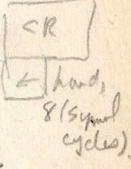 <R
<
hand,
8/symbol
cycles)